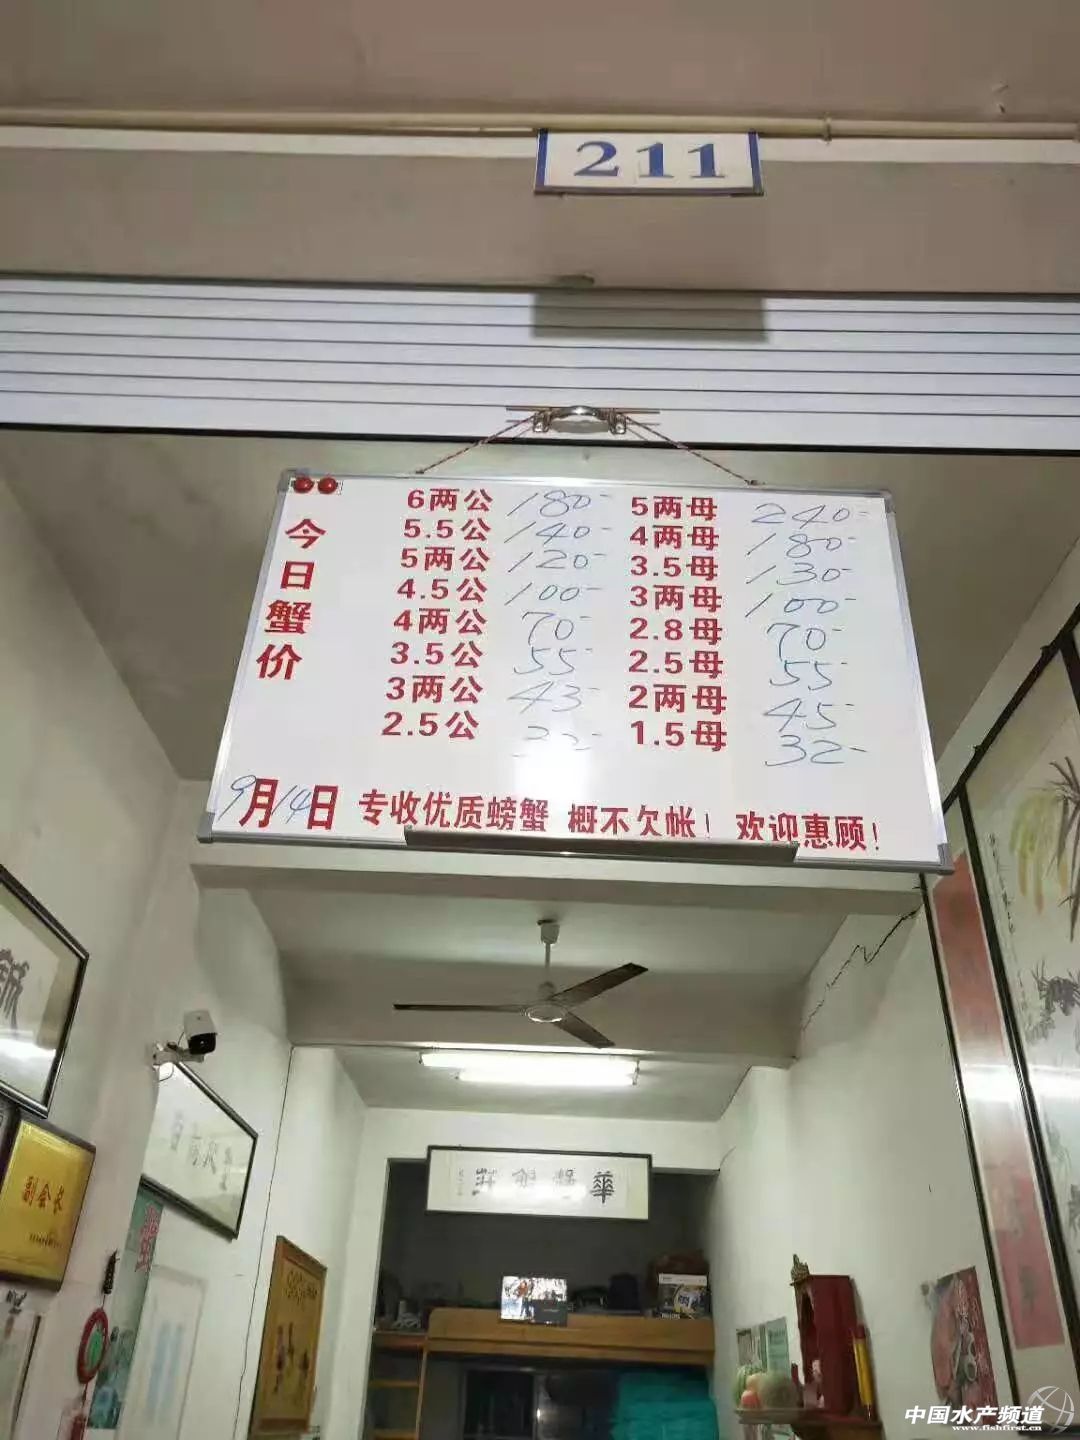 211
今日蟹价
6两公 180- 5两母 240-
5.5公 140- 4两母 180-
5两公 120- 3.5母 130-
4.5公 100- 3两母 100-
4两公 70- 2.8母 70-
3.5公 55- 2.5母 55-
3两公 43- 2两母 45-
2.5公 1.5母 32-
9月14日 专收优质螃蟹 概不欠帐！欢迎惠顾！
副会长
中国水产频道
www.fishfirst.cn